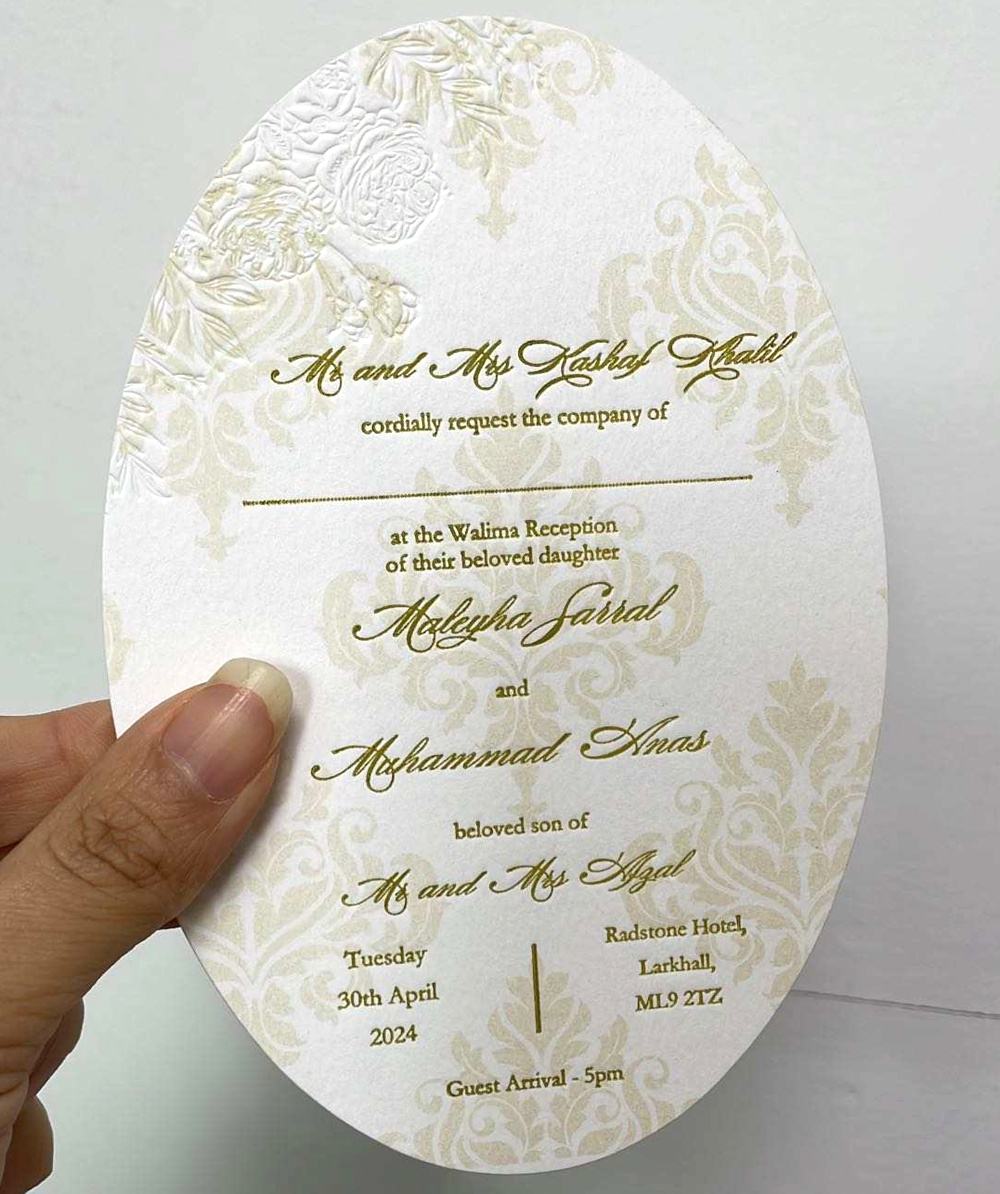 Mr and Mrs Kashaf Khalil
cordially request the company of
at the Walima Reception
of their beloved daughter
Maleyha Sarral
and
Muhammad Anas
beloved son of
Mr and Mrs Afzal
Tuesday
30th April
2024
Radstone Hotel,
Larkhall,
ML9 2TZ
Guest Arrival - 5pm